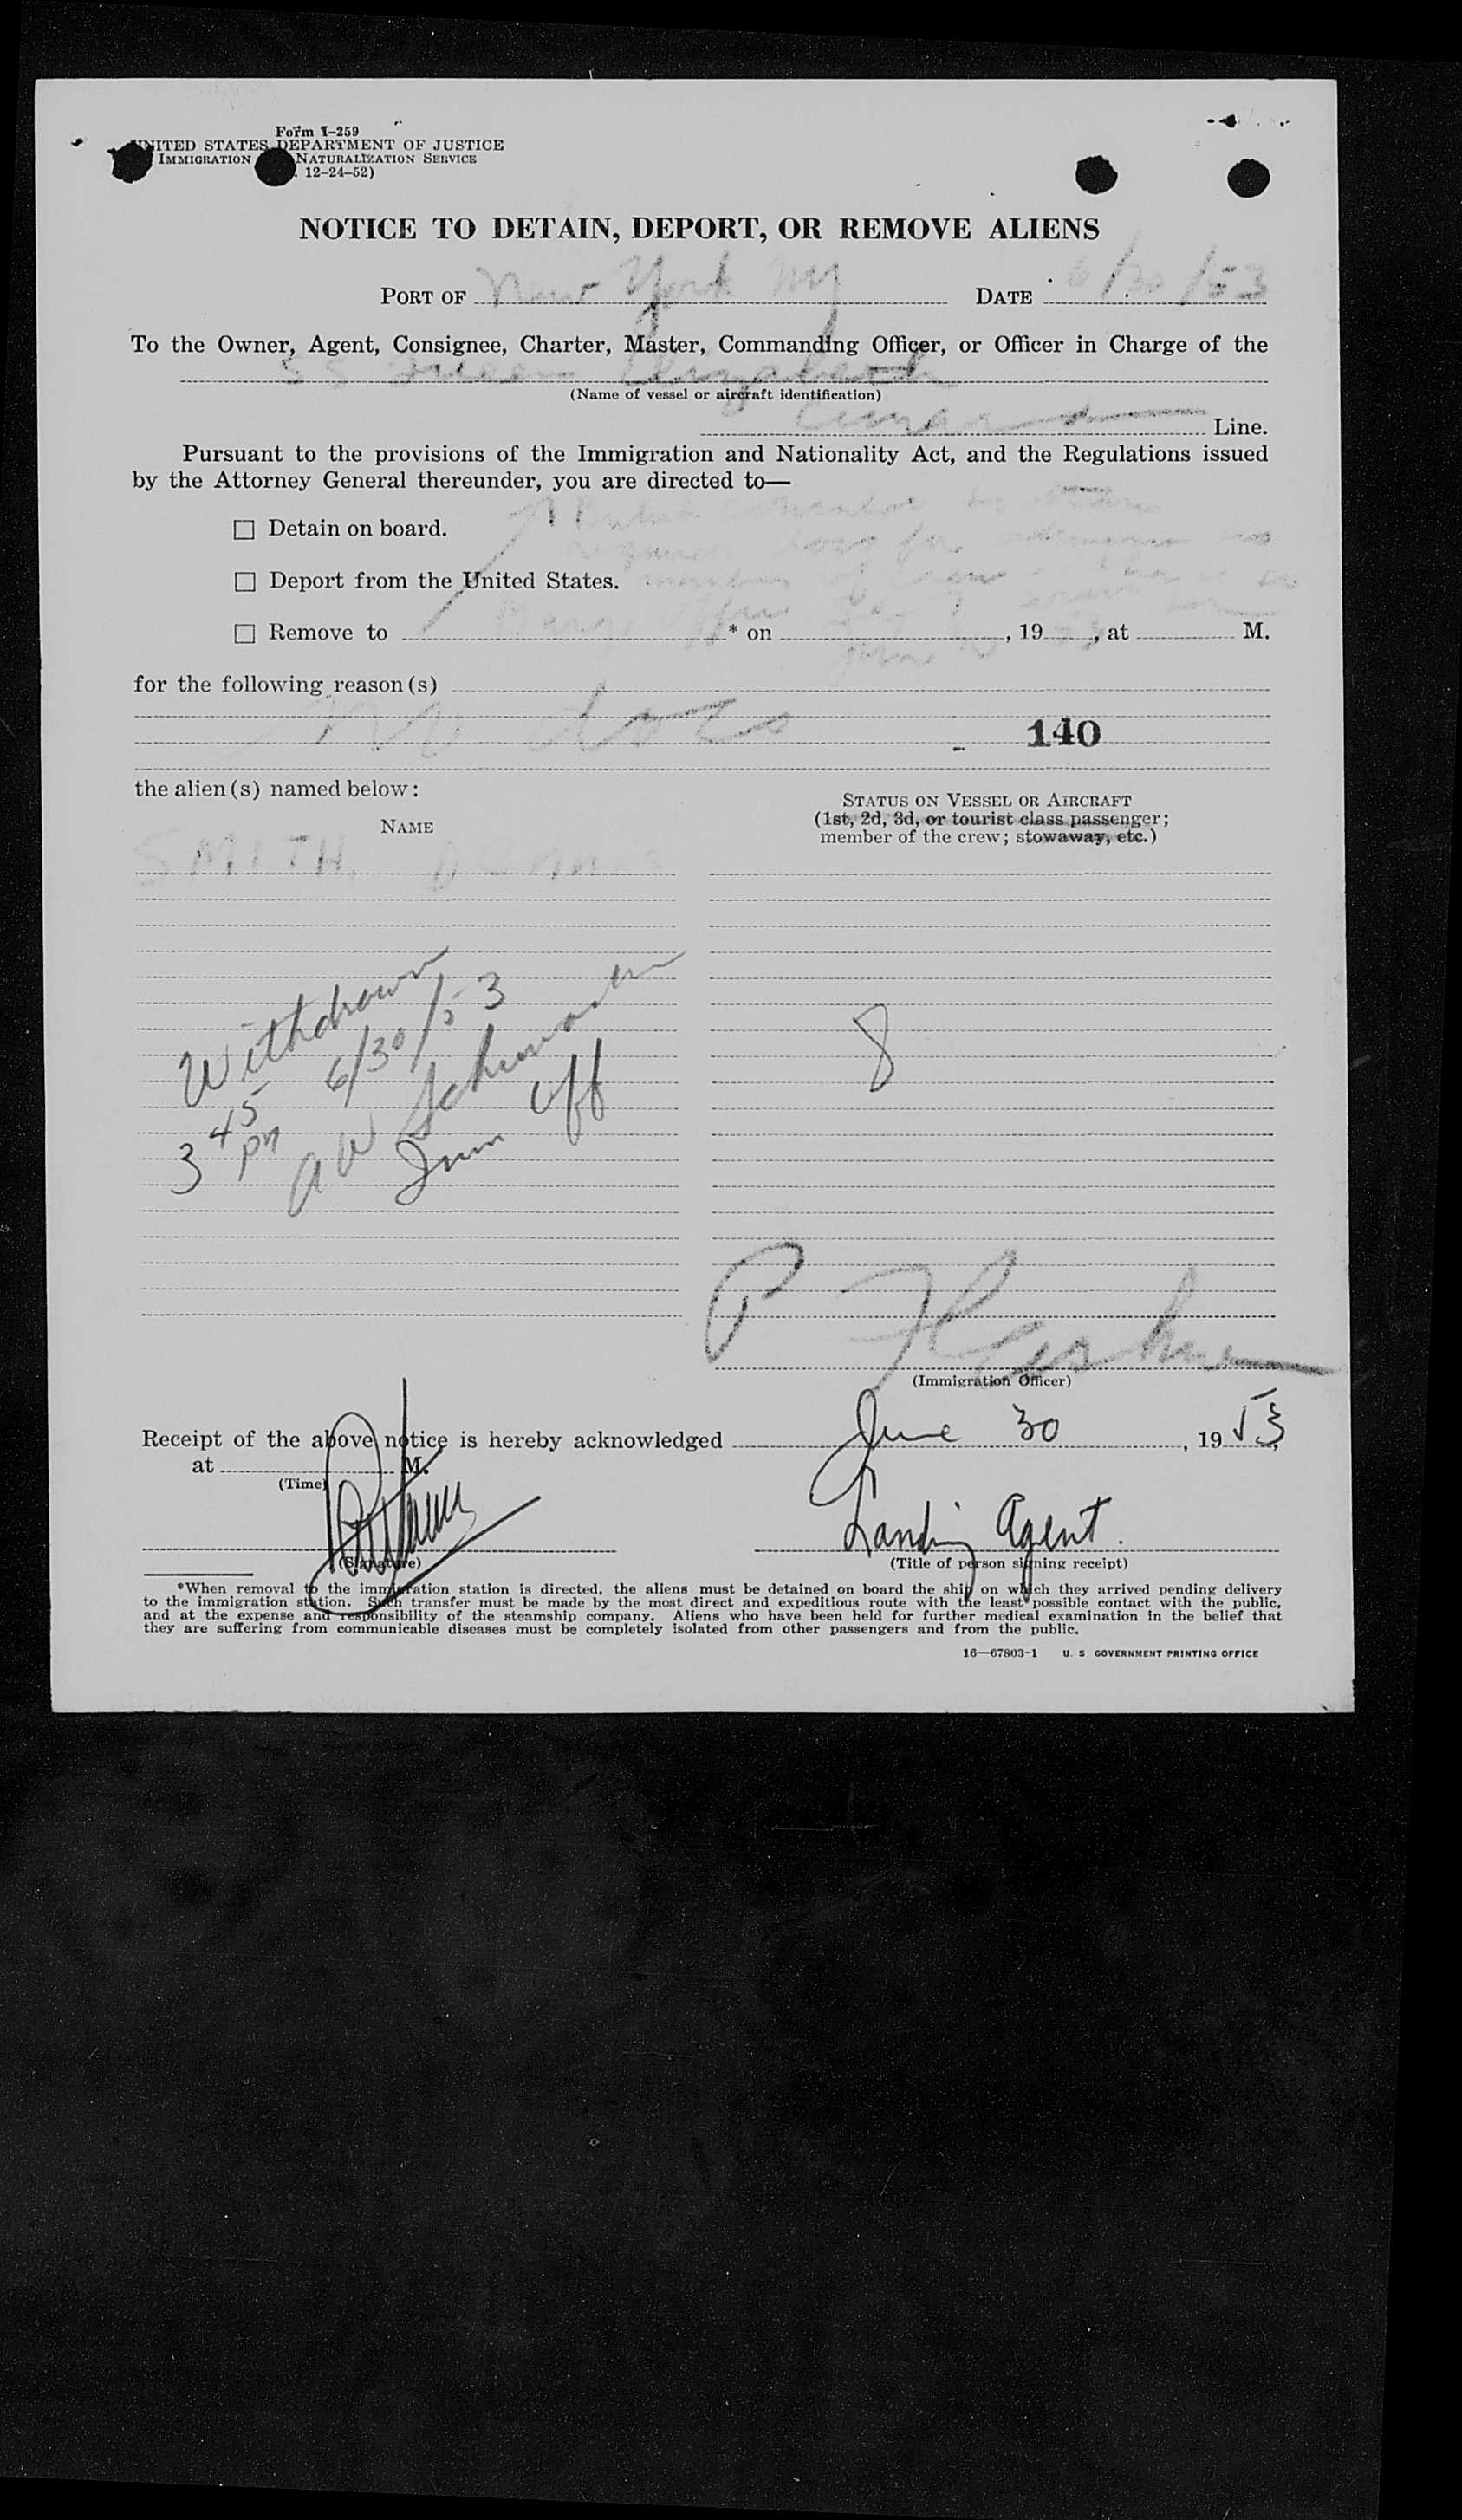 Form I-259
UNITED STATES DEPARTMENT OF JUSTICE
IMMIGRATION NATURALIZATION SERVICE
12-24-52)
NOTICE TO DETAIN, DEPORT, OR REMOVE ALIENS
PORT OF New York NY DATE 6/30/53
To the Owner, Agent, Consignee, Charter, Master, Commanding Officer, or Officer in Charge of the
SS Queen Elizabeth
(Name of vessel or aircraft identification)
Cunard Line.
Pursuant to the provisions of the Immigration and Nationality Act, and the Regulations issued
by the Attorney General thereunder, you are directed to—
☐ Detain on board.
☐ Deport from the United States.
☐ Remove to * on , 19 , at M.
for the following reason(s)
No docs
140
the alien(s) named below:
NAME
STATUS ON VESSEL OR AIRCRAFT
(1st, 2d, 3d, or tourist class passenger;
member of the crew; stowaway, etc.)
SMITH, Dennis
Withdrawn
6/30/53
3 45 pm
A W
Imm Off
8
P
(Immigration Officer)
Receipt of the above notice is hereby acknowledged June 30, 1953
at M.
(Time)
Landing Agent.
(Signature)
(Title of person signing receipt)
*When removal to the immigration station is directed, the aliens must be detained on board the ship on which they arrived pending delivery
to the immigration station. Such transfer must be made by the most direct and expeditious route with the least possible contact with the public,
and at the expense and responsibility of the steamship company. Aliens who have been held for further medical examination in the belief that
they are suffering from communicable diseases must be completely isolated from other passengers and from the public.
16—67803-1 U. S GOVERNMENT PRINTING OFFICE